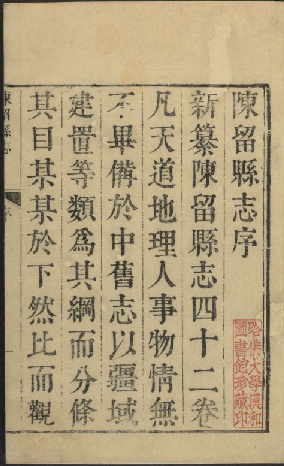 陳留縣志序
新纂陳留縣志四十二卷
凡天道地理人事物情無
不畢備於中舊志以疆域
建置等類爲其綱而分條
其目某某於下然比而觀
陳留縣志
序
哈佛大學漢和
圖書館珍藏印